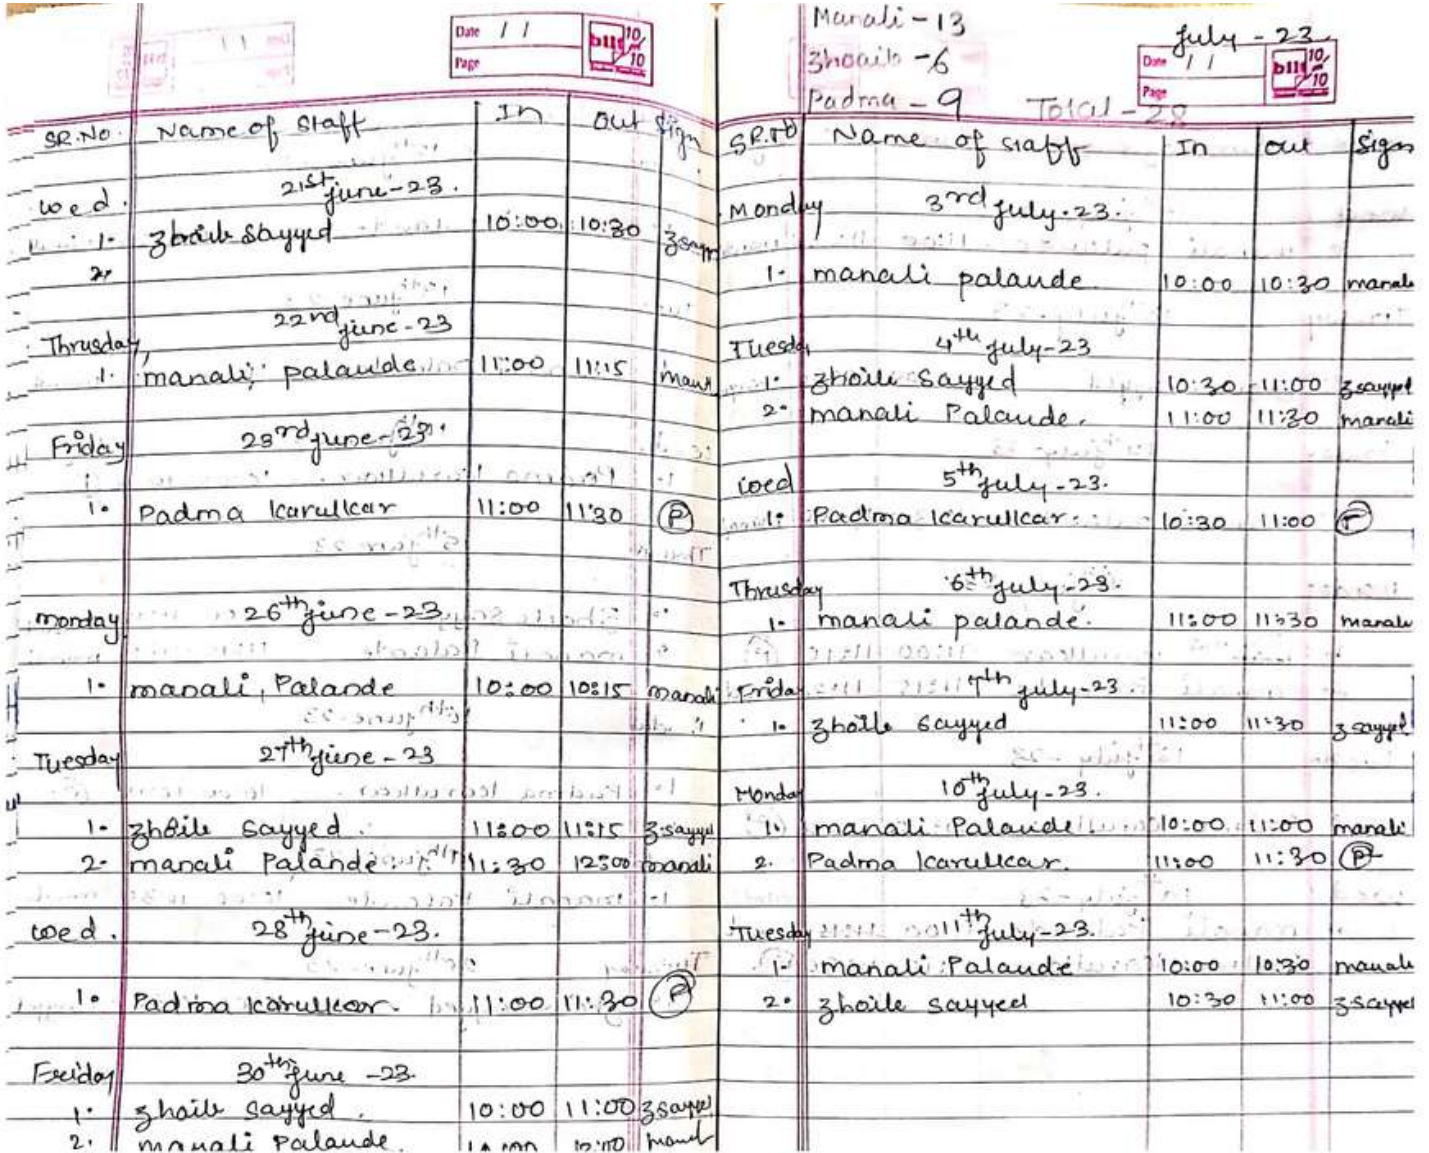 Date / /
Page
bilt 10/10
SR.No. Name of staff In Out Sign
Wed. 21st june-23.
1. Zhoib Sayyed 10:00 10:30 Zsayy
2.
Thrusday 22nd june-23
1. manali palande 11:00 11:15
Friday 23rd june-23.
1. Padma Karulkar 11:00 11:30 P
monday 26th june-23
1. manali, Palande 10:00 10:15 manali
Tuesday 27th june-23
1. Zhoib Sayyed. 11:00 11:15 Z.sayyed
2. manali Palande. 11:30 12:00 manali
Wed. 28th june-23.
1. Padma Karulkar. 11:00 11:30 P
Friday 30th june-23.
1. Zhoib Sayyed. 10:00 11:00 Zsayyed
2. manali Palande. 12:00
Manali-13
Zhoaib-6
Padma-9
Total-28
July-23.
Date / /
Page
bilt 10/10
SR.No Name of staff In Out Sign
Monday 3rd july-23.
1. manali palande 10:00 10:30 manali
Tuesday 4th july-23
1. Zhoib Sayyed 10:30 11:00 Zsayyed
2. manali Palande. 11:00 11:30 manali
Wed 5th july-23.
1. Padma Karulkar. 10:30 11:00 P
Thrusday 6th july-23.
1. manali palande. 11:00 11:30 manali
Friday 7th july-23
1. Zhoib Sayyed 11:00 11:30 Zsayyed
Monday 10th july-23.
1. manali Palande 10:00 11:00 manali
2. Padma Karulkar. 11:00 11:30 P
Tuesday 11th july-23.
1. manali Palande 10:00 10:30 manali
2. Zhoib sayyed 10:30 11:00 Zsayyed